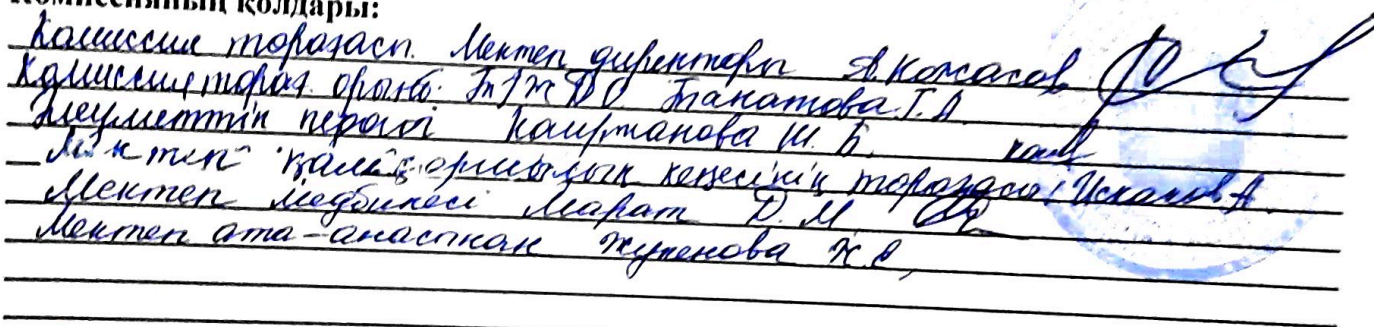 Комиссияның қолдары:
Комиссия торағасы. Мектеп директоры А.Кожасов
Комиссия тораг. орынб. БТЖДО Танатова Г.А.
Әлеуметтік педагог Каиржанова Ш.Б.
Мектеп қамқоршылық кеңесінің торағасы Искаков А.
Мектеп медбикесі Марат Д.М
Мектеп ата-анасынан Жукенова Ж.С,